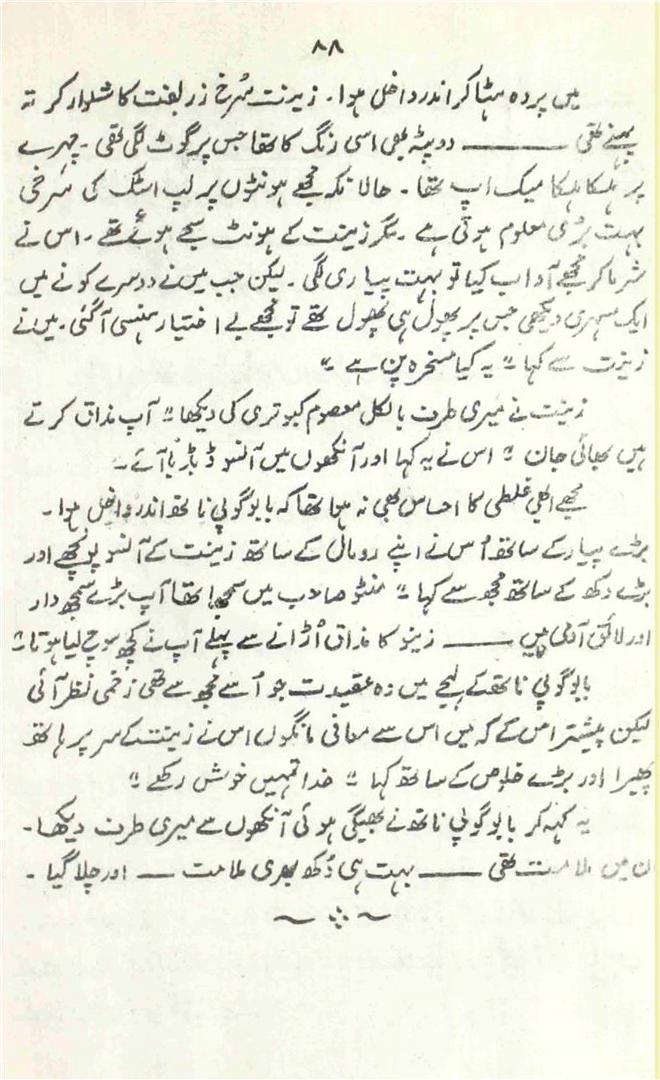 ۸۸
میں پردہ ہٹا کر اندر داخل ہوا۔ زینت سُرخ زربفت کا شلوار کرتہ
پہنے تھی ——— دوپٹہ بھی اسی رنگ کا تھا جس پر گوٹ لگی تھی۔ چہرے
پر ہلکا ہلکا میک اپ تھا۔ حالانکہ مجھے ہونٹوں پر لپ اسٹک کی سرخی
بہت بُری معلوم ہوتی ہے۔ مگر زینت کے ہونٹ سجے ہوئے تھے۔ اس نے
شرما کر مجھے آداب کیا تو بہت پیاری لگی۔ لیکن جب میں نے دوسرے کونے میں
ایک مسہری دیکھی جس پر پھول ہی پھول تھے تو مجھے بے اختیار ہنسی آ گئی۔ میں نے
زینت سے کہا ”یہ کیا مسخرہ پن ہے“
زینت نے میری طرف بالکل معصوم کبوتری کی دیکھا ”آپ مذاق کرتے
ہیں بھائی جان“ اس نے یہ کہا اور آنکھوں میں آنسو ڈبڈبا آئے۔
مجھے ابھی غلطی کا احساس بھی نہ ہوا تھا کہ بابو گوپی ناتھ اندر داخل ہوا۔
بڑے پیار کے ساتھ اُس نے اپنے رومال کے ساتھ زینت کے آنسو پونچھے اور
بڑے دکھ کے ساتھ مجھ سے کہا ”منٹو صاحب میں سمجھا تھا آپ بڑے سمجھ دار
اور لائق آدمی ہیں ——— زینو کا مذاق اُڑانے سے پہلے آپ نے کچھ سوچ لیا ہوتا“
بابو گوپی ناتھ کے لہجے میں وہ عقیدت جو اُسے مجھ سے تھی زخمی نظر آئی
لیکن پیشتر اس کے کہ میں اس سے معافی مانگوں اس نے زینت کے سر پر ہاتھ
پھیرا اور بڑے خلوص کے ساتھ کہا ”خدا تمہیں خوش رکھے“
یہ کہہ کر بابو گوپی ناتھ نے بھیگی ہوئی آنکھوں سے میری طرف دیکھا۔
ان میں ملامت تھی ——— بہت ہی دُکھ بھری ملامت — اور چلا گیا۔